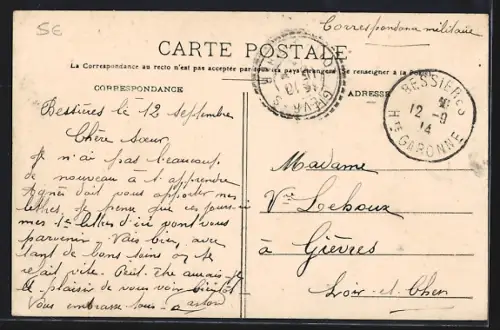 5€
Correspondance militaire
CARTE POSTALE
La Correspondance au recto n'est pas acceptée par tous les pays étrangers se renseigner à la Poste
CORRESPONDANCE
ADRESSE
GIÈVRES
BESSIERES
12 - 9
14
Hte GARONNE
Bessières le 12 septembre
Chère Sœur
Je n'ai pas beaucoup
de nouveau à t'apprendre
Agnès doit vous apporter mes
lettres, je pense que ces jours-ci
mes 1es lettres d'ici vont vous
parvenir. Vais bien, avec
tant de bons soins on se
refait vite. Peut-être aurais-je
le plaisir de vous voir bientôt
Vous embrasse tous
Madame
Vve Leboux
à Gièvres
Loir-et-Cher